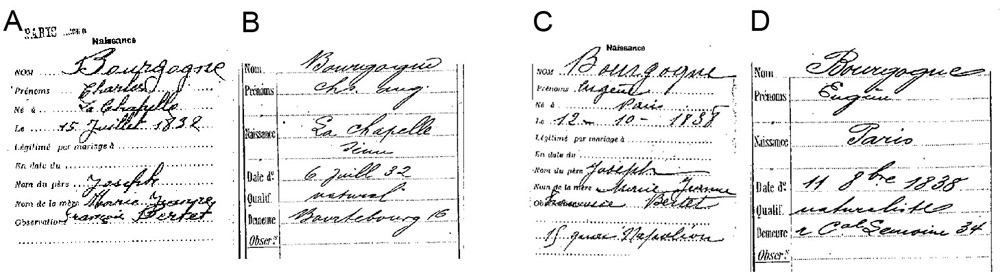 A
PARIS
Naissance
NOM Bourgogne
Prénoms Charles
Né à La Chapelle
Le 15 Juillet 1832
Légitimé par mariage à
En date du
Nom du père Joseph
Nom de la mère Marie Jeanne
Observations Françoise Bertet
B
Nom Bourgogne
Prénoms Chs. Eug.
Naissance La Chapelle
Seine
Date de 6 Juill 32
Qualif. natural
Demeure 16
Obser.s
C
Naissance
NOM Bourgogne
Prénoms Eugène
Né à Paris
Le 12-10-1838
Légitimé par mariage à
En date du
Nom du père Joseph
Nom de la mère Marie Jeanne
Françoise Bertet
15 Napoléon
D
Nom Bourgogne
Prénoms Eugène
Naissance Paris
Date de 11 8bre 1838
Qualif. naturaliste
Demeure r Cal Lemoine 34
Obser.s